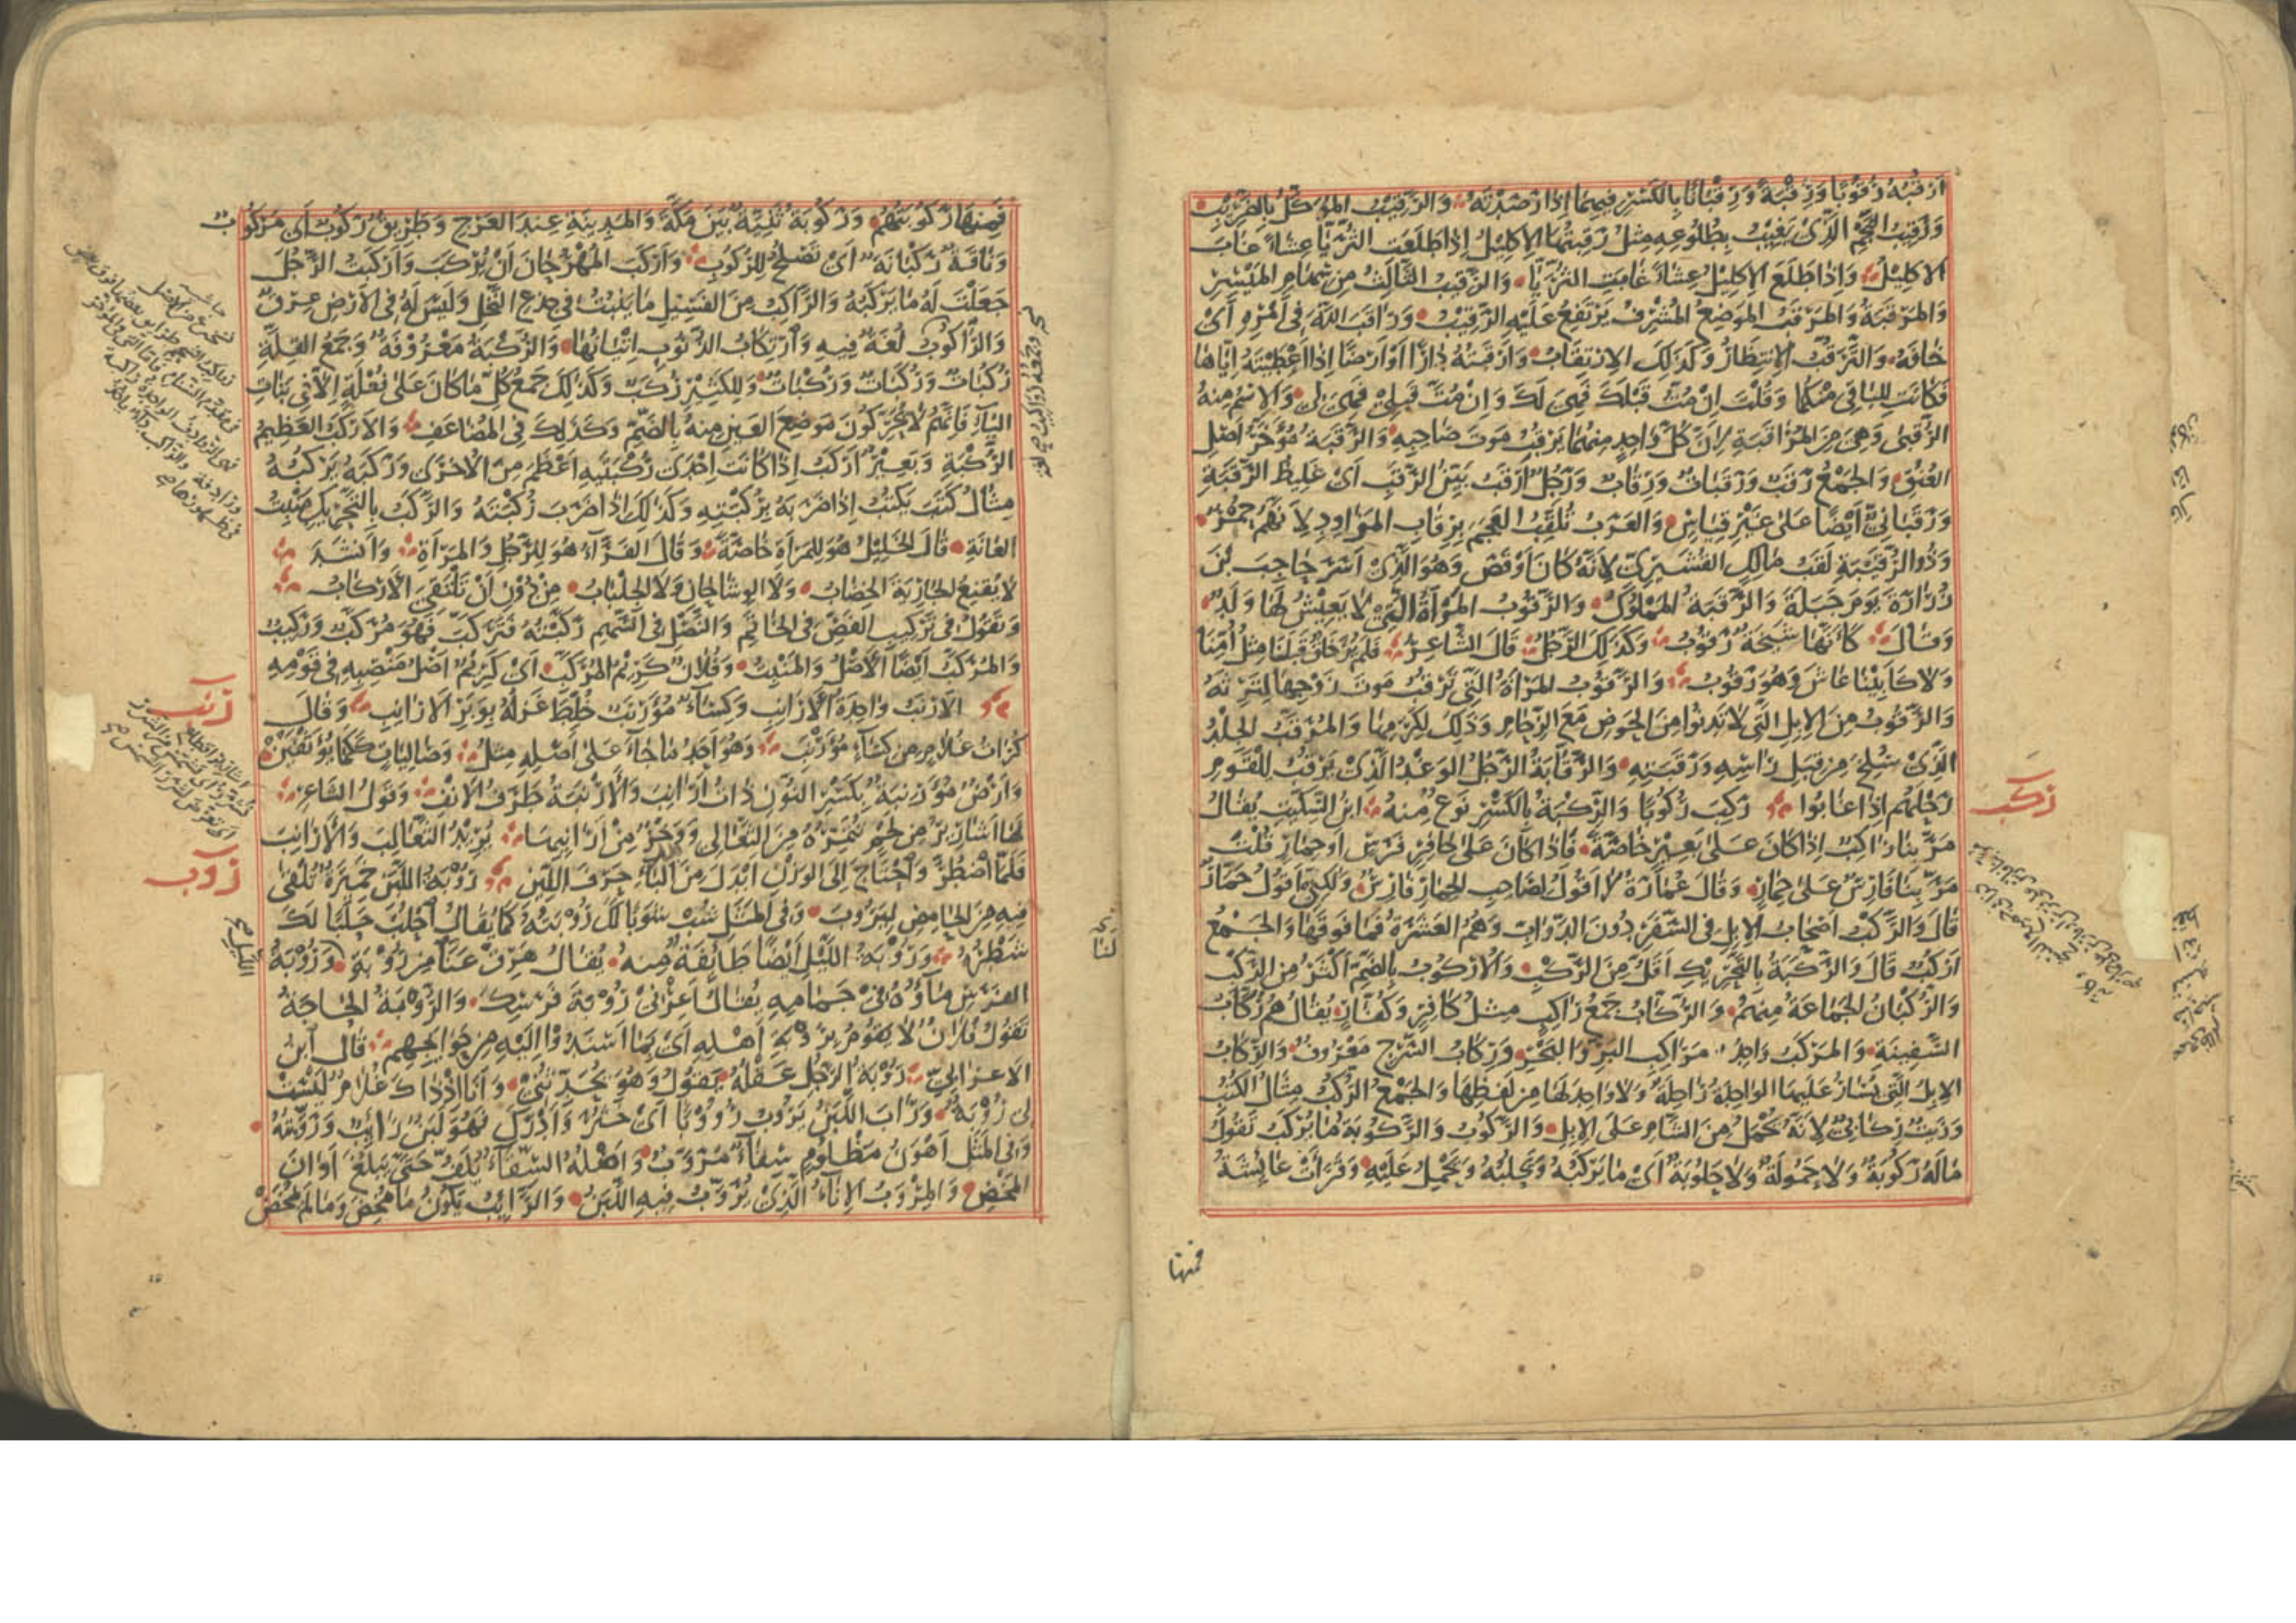 أَرْقُبُهُ رُقُوبًا وَرِقْبَةً وَرِقْبَانًا بِالكَسْرِ فِيهِمَا إِذَا رَصَدْتَهُ وَالرَّقِيبُ المُوَكَّلُ بِالضَّرِيبِ
وَرَقِيبُ النَّجْمِ الَّذِي يَغِيبُ بِطُلُوعِهِ مِثْلُ رَقِيبُهَا الإِكْلِيلُ إِذَا طَلَعَتِ الثُّرَيَّا عِشَاءً غَابَ
الإِكْلِيلُ وَإِذَا طَلَعَ الإِكْلِيلُ عِشَاءً غَابَتِ الثُّرَيَّا وَالرَّقِيبُ الثَّالِثُ مِنْ سِهَامِ المَيْسِرِ
وَالمَرْقَبَةُ وَالمَرْقَبُ المَوْضِعُ المُشْرِفُ يَرْتَفِعُ عَلَيْهِ الرَّقِيبُ وَرَاقَبَ اللّٰهَ فِي أَمْرِهِ أَيْ
خَافَهُ وَالتَّرَقُّبُ الاِنْتِظَارُ وَكَذَلِكَ الاِرْتِقَابُ وَأَرْقَبْتُهُ دَارًا أَوْ أَرْضًا إِذَا أَعْطَيْتَهُ إِيَّاهَا
فَكَانَتْ لِلْبَاقِي مِنْكُمَا وَقُلْتَ إِنْ مُتُّ قَبْلَكَ فَهِيَ لَكَ وَإِنْ مُتَّ قَبْلِي فَهِيَ لِي وَالاِسْمُ مِنْهُ
الرُّقْبَى وَهِيَ مِنَ المُرَاقَبَةِ لِأَنَّ كُلَّ وَاحِدٍ مِنْهُمَا يَرْقُبُ مَوْتَ صَاحِبِهِ وَالرَّقَبَةُ مُؤَخَّرُ أَصْلِ
العُنُقِ وَالجَمْعُ رَقَبٌ وَرَقَبَاتٌ وَرِقَابٌ وَرَجُلٌ أَرْقَبُ بَيِّنُ الرَّقَبِ أَيْ غَلِيظُ الرَّقَبَةِ
وَرَقَبَانِيٌّ أَيْضًا عَلَى غَيْرِ قِيَاسٍ وَالعَرَبُ تُلَقِّبُ العَجَمَ بِرِقَابِ المَزَاوِدِ لِأَنَّهُمْ حُمْرٌ
وَذُو الرُّقَيْبَةِ لَقَبُ مَالِكٍ القُشَيْرِيِّ لِأَنَّهُ كَانَ أَوْقَصَ وَهُوَ الَّذِي أَسَرَ حَاجِبَ بْنَ
زُرَارَةَ يَوْمَ جَبَلَةَ وَالرَّقَبَةُ المَمْلُوكُ وَالرَّقُوبُ المَرْأَةُ الَّتِي لَا يَعِيشُ لَهَا وَلَدٌ
وَقَالَ كَأَنَّهَا شَيْخَةٌ رَقُوبُ وَكَذَلِكَ الرَّجُلُ قَالَ الشَّاعِرُ فَلَمْ يَرَ خَلْقٌ قَبْلَنَا مِثْلَ أُمِّنَا
وَلَا كَأَبِينَا عَاشَ وَهُوَ رَقُوبُ وَالرَّقُوبُ المَرْأَةُ الَّتِي تَرْقُبُ مَوْتَ زَوْجِهَا لِتَرِثَهُ
وَالرَّقُوبُ مِنَ الإِبِلِ الَّتِي لَا تَدْنُو مِنَ الحَوْضِ مَعَ الزِّحَامِ وَذَلِكَ لِكَرَمِهَا وَالمُرَقَّبُ الجِلْدُ
الَّذِي سُلِخَ مِنْ قِبَلِ رَأْسِهِ وَرَقَبَتِهِ وَالرَّقَّابَةُ الرَّجُلُ الوَغْدُ الَّذِي يَرْقُبُ لِلْقَوْمِ
رَحْلَهُمْ إِذَا غَابُوا رَكِبَ رُكُوبًا وَالرِّكْبَةُ بِالكَسْرِ نَوْعٌ مِنْهُ ابْنُ السِّكِّيتِ يُقَالُ
ركب
مَرَّ بِنَا رَاكِبٌ إِذَا كَانَ عَلَى بَعِيرٍ خَاصَّةً فَإِذَا كَانَ عَلَى حَافِرٍ فَرَسٍ أَوْ حِمَارٍ قُلْتَ
مَرَّ بِنَا فَارِسٌ عَلَى حِمَارٍ وَقَالَ عُمَارَةُ لَا أَقُولُ لِصَاحِبِ الحِمَارِ فَارِسٌ وَلَكِنِّي أَقُولُ حَمَّارٌ
قَالَ وَالرَّكْبُ أَصْحَابُ الإِبِلِ فِي السَّفَرِ دُونَ الدَّوَابِّ وَهُمُ العَشَرَةُ فَمَا فَوْقَهَا وَالجَمْعُ
أَرْكُبٌ قَالَ وَالرَّكَبَةُ بِالتَّحْرِيكِ أَقَلُّ مِنَ الرَّكْبِ وَالأُرْكُوبُ بِالضَّمِّ أَكْثَرُ مِنَ الرَّكْبِ
وَالرُّكْبَانُ الجَمَاعَةُ مِنْهُمْ وَالرُّكَّابُ جَمْعُ رَاكِبٍ مِثْلُ كَافِرٍ وَكُفَّارٍ يُقَالُ هُمْ رُكَّابُ
السَّفِينَةِ وَالمَرْكَبُ وَاحِدُ مَرَاكِبِ البَرِّ وَالبَحْرِ وَرِكَابُ السَّرْجِ مَعْرُوفٌ وَالرِّكَابُ
الإِبِلُ الَّتِي يُسَارُ عَلَيْهَا الوَاحِدَةُ رَاحِلَةٌ وَلَا وَاحِدَ لَهَا مِنْ لَفْظِهَا وَالجَمْعُ الرُّكُبُ مِثَالُ الكُتُبِ
وَزَيْتٌ رِكَابِيٌّ لِأَنَّهُ يُحْمَلُ مِنَ الشَّامِ عَلَى الإِبِلِ وَالرَّكُوبُ وَالرَّكُوبَةُ مَا يُرْكَبُ تَقُولُ
مَا لَهُ رَكُوبَةٌ وَلَا حَمُولَةٌ وَلَا حَلُوبَةٌ أَيْ مَا يَرْكَبُهُ وَيَحْلُبُهُ وَيَحْمِلُ عَلَيْهِ وَقَرَأَتْ عَائِشَةُ
فمنها
فَمِنْهَا رَكُوبَتُهُمْ وَرَكُوبَةُ ثَنِيَّةٌ بَيْنَ مَكَّةَ وَالمَدِينَةِ عِنْدَ العَرْجِ وَطَرِيقٌ رَكُوبٌ أَيْ مَرْكُوبٌ
وَنَاقَةٌ رَكْبَانَةٌ أَيْ تَصْلُحُ لِلرُّكُوبِ وَأَرْكَبَ المُهْرُ حَانَ أَنْ يُرْكَبَ وَأَرْكَبْتُ الرَّجُلَ
جَعَلْتُ لَهُ مَا يَرْكَبُهُ وَالرَّاكِبُ مِنَ الفَسِيلِ مَا يَنْبُتُ فِي جِذْعِ النَّخْلِ وَلَيْسَ لَهُ فِي الأَرْضِ عِرْقٌ
وَالرَّاكُوبُ لُغَةٌ فِيهِ وَارْتِكَابُ الذُّنُوبِ إِتْيَانُهَا وَالرُّكْبَةُ مَعْرُوفَةٌ وَجَمْعُ القِلَّةِ
رُكْبَاتٌ وَرُكَبَاتٌ وَرُكُبَاتٌ وَلِلْكَثِيرِ رُكَبٌ وَكَذَلِكَ جَمْعُ كُلِّ مَا كَانَ عَلَى فُعْلَةٍ إِلَّا فِي بَنَاتِ
اليَاءِ فَإِنَّهُمْ لَا يُحَرِّكُونَ مَوْضِعَ العَيْنِ مِنْهُ بِالضَّمِّ وَكَذَلِكَ فِي المُضَاعَفِ وَالأَرْكَبُ العَظِيمُ
الرُّكْبَةِ وَبَعِيرٌ أَرْكَبُ إِذَا كَانَتْ إِحْدَى رُكْبَتَيْهِ أَعْظَمَ مِنَ الأُخْرَى وَرَكَبَهُ يَرْكُبُهُ
مِثَالُ كَتَبَ يَكْتُبُ إِذَا ضَرَبَهُ بِرُكْبَتِهِ وَكَذَلِكَ إِذَا ضَرَبَ رُكْبَتَهُ وَالرَّكَبُ بِالتَّحْرِيكِ مَنْبِتُ
العَانَةِ قَالَ الخَلِيلُ هُوَ لِلْمَرْأَةِ خَاصَّةً وَقَالَ الفَرَّاءُ هُوَ لِلرَّجُلِ وَالمَرْأَةِ وَأَنْشَدَ
لَا يُقْنِعُ الجَارِيَةَ الخِضَابُ وَلَا الوِشَاحَانِ وَلَا الجِلْبَابُ مِنْ دُونِ أَنْ تَلْتَقِيَ الأَرْكَابُ
وَتَقُولُ فِي تَرْكِيبِ الفَصِّ فِي الخَاتَمِ وَالنَّصْلِ فِي السَّهْمِ رَكَّبْتُهُ فَتَرَكَّبَ فَهُوَ مُرَكَّبٌ وَرَكِيبٌ
وَالمُرَكَّبُ أَيْضًا الأَصْلُ وَالمَنْبِتُ وَفُلَانٌ كَرِيمُ المُرَكَّبِ أَيْ كَرِيمٌ أَصْلُ مَنْصِبِهِ فِي قَوْمِهِ
رنب
الأَرْنَبُ وَاحِدَةُ الأَرَانِبِ وَكِسَاءٌ مُؤَرْنَبٌ خُلِطَ غَزْلُهُ بِوَبَرِ الأَرَانِبِ وَقَالَ
كُرَاتُ غُلَامٍ مِنْ كِسَاءٍ مُؤَرْنَبِ وَهُوَ أَحَدُ مَا جَاءَ عَلَى أَصْلِهِ مِثْلُ وَصَالِيَاتٍ كَكَمَا يُؤَثْفَيْنْ
وَأَرْضٌ مُؤَرْنِبَةٌ بِكَسْرِ النُّونِ ذَاتُ أَرَانِبَ وَالأَرْنَبَةُ طَرَفُ الأَنْفِ وَقَوْلُ الشَّاعِرِ
لَهَا أَشَارِيرُ مِنْ لَحْمٍ تُتَمِّرُهُ مِنَ الثَّعَالِي وَوَخْزٌ مِنْ أَرَانِيهَا يُرِيدُ الثَّعَالِبَ وَالأَرَانِبَ
فَلَمَّا اضْطُرَّ وَاحْتَاجَ إِلَى الوَزْنِ أَبْدَلَ مِنَ البَاءِ حَرْفَ اللِّينِ رُوبَةُ اللَّبَنِ خَمِيرَةٌ تُلْقَى
روب
فِيهِ مِنَ الحَامِضِ لِيَرُوبَ وَفِي المَثَلِ شُبْ شَوْبًا لَكَ رُوبَتُهُ كَمَا يُقَالُ احْلُبْ حَلَبًا لَكَ
شَطْرُهُ وَرُوبَةُ اللَّيْلِ أَيْضًا طَائِفَةٌ مِنْهُ يُقَالُ هَرِّقْ عَنَّا مِنْ رُوبَةِ وَرُوبَةُ
الليل صح
الفَرَسِ مَاؤُهُ فِي جَمَامِهِ يُقَالُ أَعِرْنِي رُوبَةَ فَرَسِكَ وَالرُّوبَةُ الحَاجَةُ
تَقُولُ فُلَانٌ لَا يَقُومُ بِرُوبَةِ أَهْلِهِ أَيْ بِمَا أَسْنَدُوا إِلَيْهِ مِنْ حَوَائِجِهِمْ قَالَ ابْنُ
الأَعْرَابِيِّ رُوبَةُ الرَّجُلِ عَقْلُهُ يَقُولُ وَهُوَ يُحَدِّثُنِي وَأَنَا إِذْ ذَاكَ غُلَامٌ لَيْسَتْ
لِي رُوبَةٌ وَرَابَ اللَّبَنُ يَرُوبُ رُؤُوبًا أَيْ خَثُرَ وَأَدْرَكَ فَهُوَ لَبَنٌ رَائِبٌ وَرَوَّبْتُهُ
وَفِي المَثَلِ أَهْوَنُ مَظْلُومٍ سِقَاءٌ مُرَوَّبٌ وَأَصْلُهُ السِّقَاءُ يُلَفُّ حَتَّى يَبْلُغَ أَوَانَ
المَخْضِ وَالمِرْوَبُ الإِنَاءُ الَّذِي يُرَوَّبُ فِيهِ اللَّبَنُ وَالرَّائِبُ يَكُونُ مَا مُخِضَ وَمَا لَمْ يُمْخَضْ